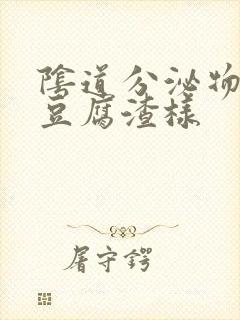 陰道分泌物
豆腐渣樣
屠守鍔